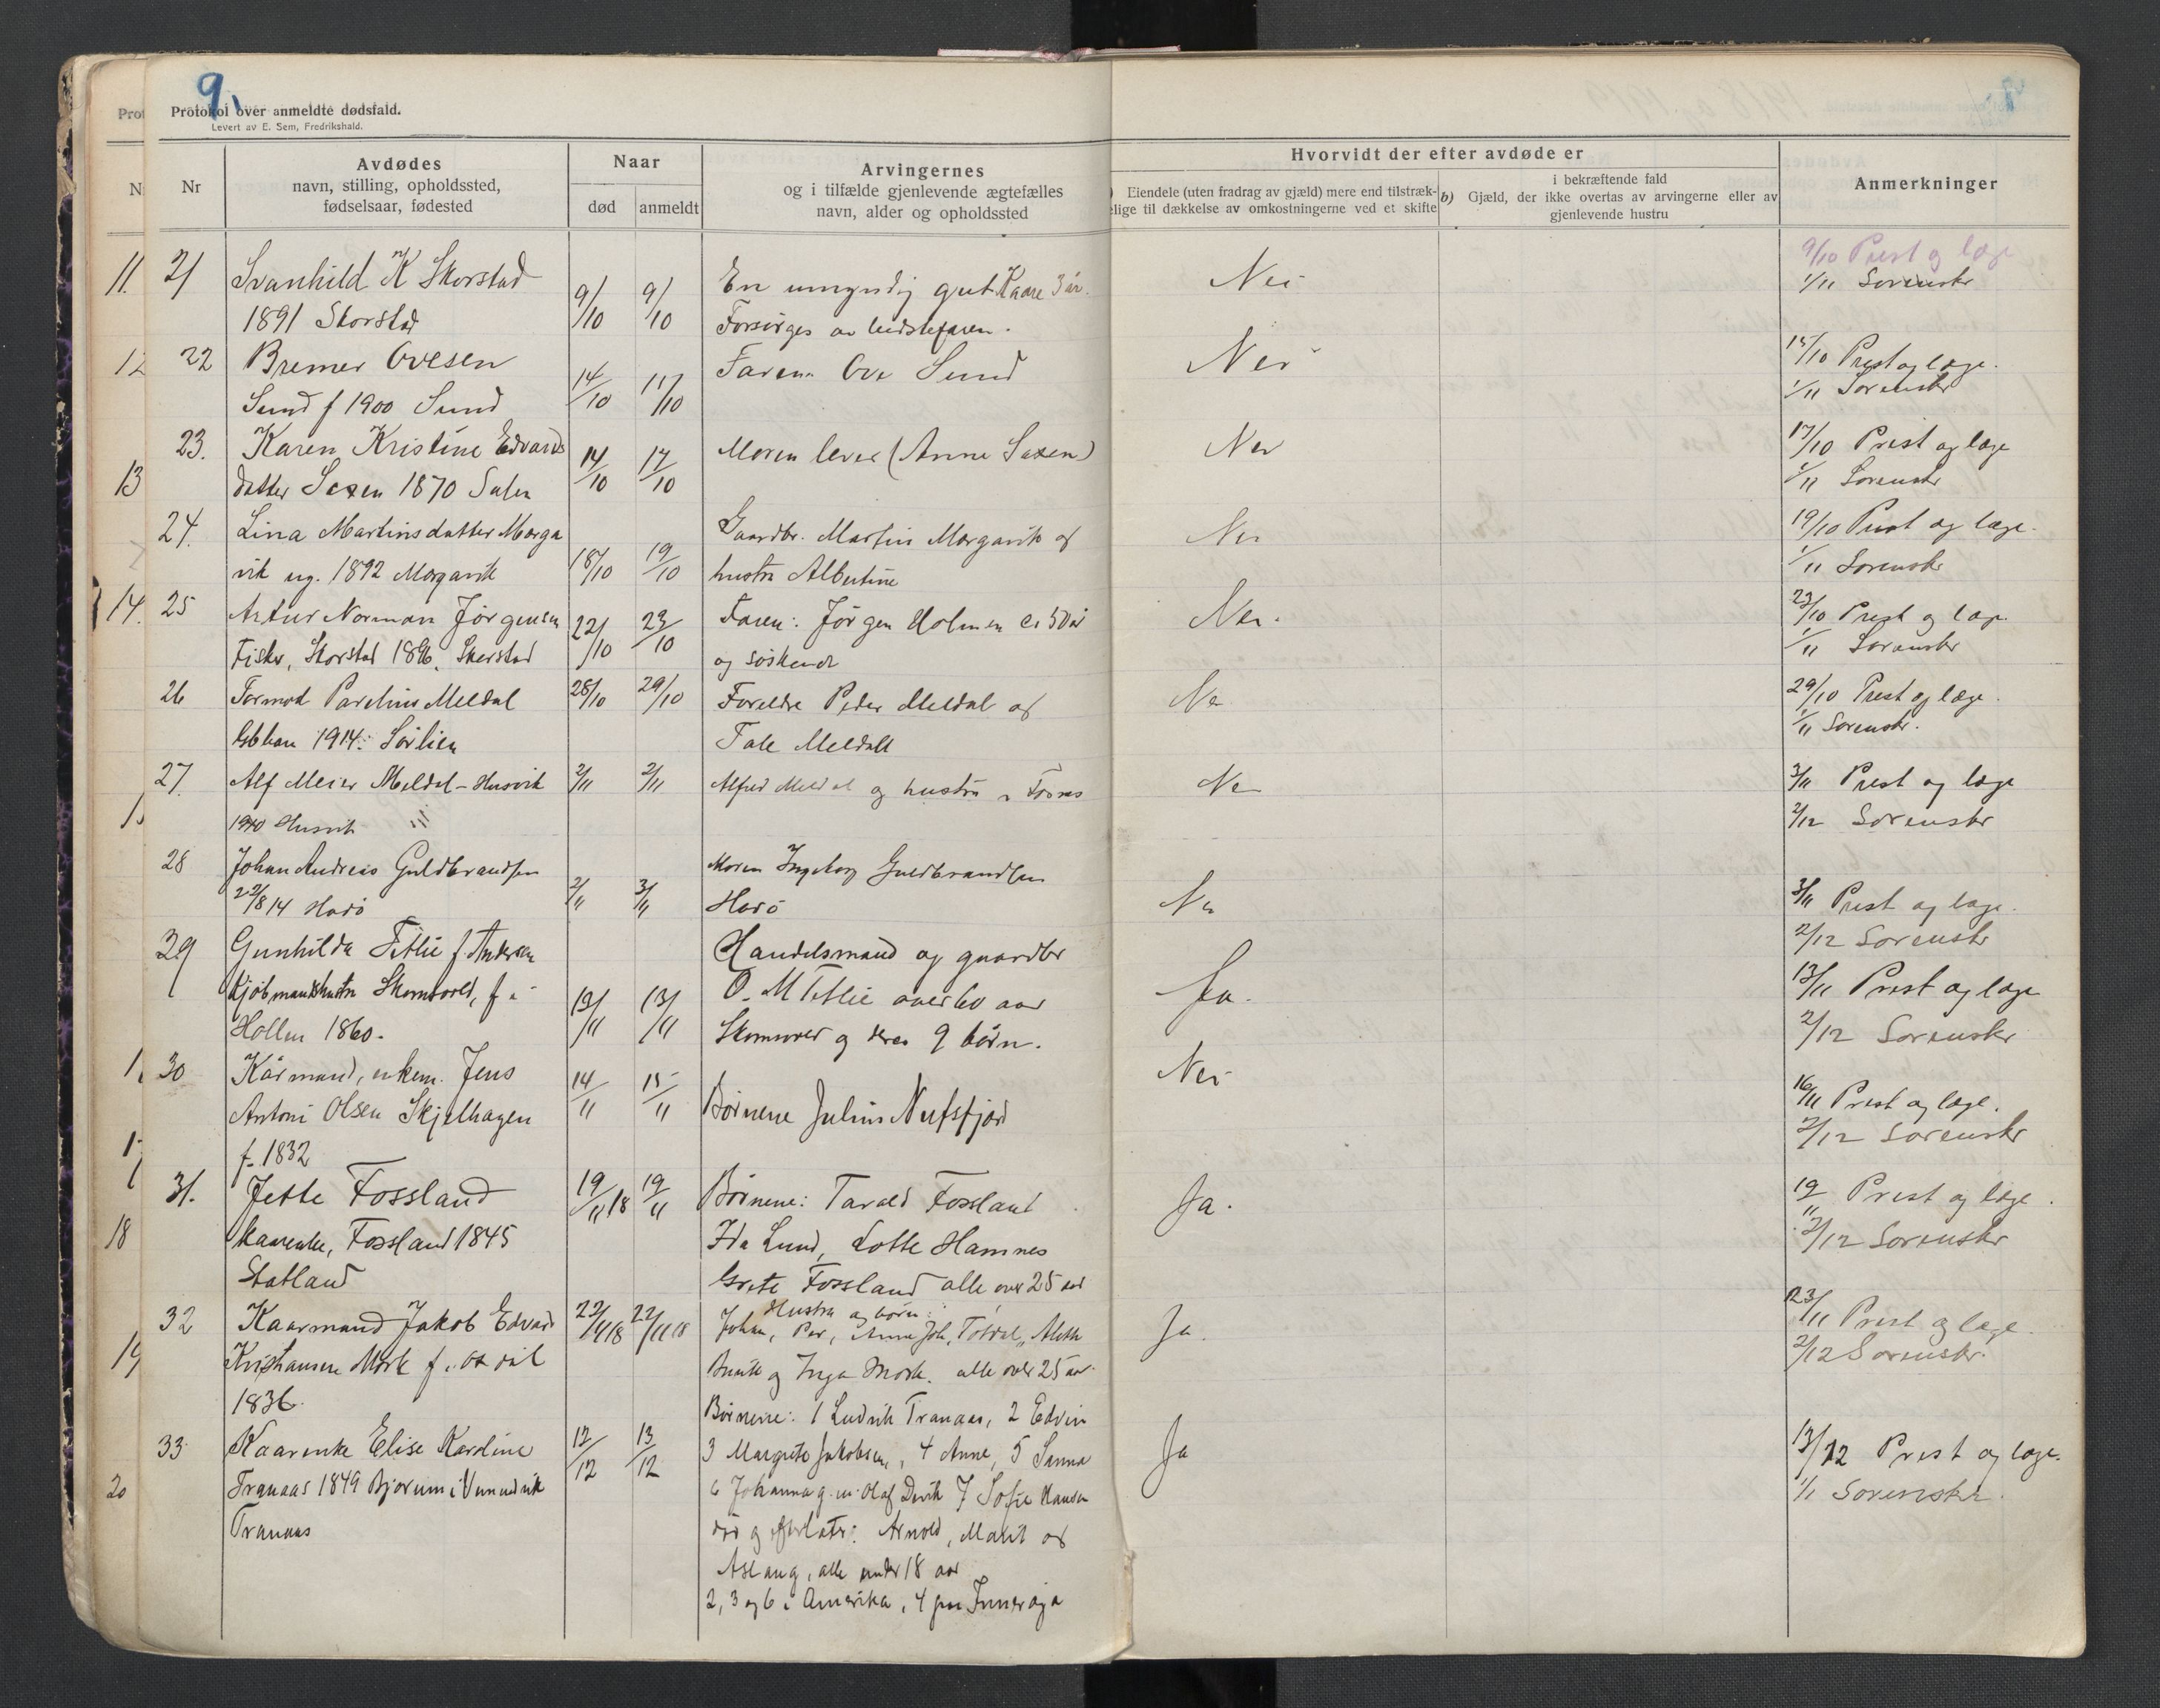 9.
Protokol over anmeldte dødsfald.
Levert av E. Sem, Fredrikshald.
Nr
Avdødes
navn, stilling, opholdssted,
fødselsaar, fødested
Naar
død
anmeldt
Arvingernes
og i tilfælde gjenlevende ægtefælles
navn, alder og opholdssted
Hvorvidt der efter avdøde er
Eiendele (uten fradrag av gjæld) mere end tilstræk-
elige til dækkelse av omkostningerne ved et skifte
b)
i bekræftende fald
Gjæld, der ikke overtas av arvingerne eller av
gjenlevende hustru
Anmerkninger
21 Svanhild K Skorstad 9/10 9/10 En umyndig gut Kaare 3 år. Nei 9/10 Prest og læge
1891 Skorstad Forsørges av 1/11 Sorenskr
22 Bremer Ovesen 14/10 17/10 Faren Ove Sund Nei 15/10 Prest og læge.
Sund f 1900 Sund 1/11 Sorenskr
23. Karen Kristine Edvards 14/10 17/10 Moren lever (Anne Saxen) Nei 17/10 Prest og læge
datter Saxen 1870 1/11 Sorenskr
24. Lina Martinsdatter Morga 18/10 19/10 Gaardbr. Martin Morgavik og Nei 19/10 Prest og læge.
vik ug. 1892 Morgavik hustru Albertine 1/11 Sorenskr
25 Artur Norman Jørgensen 22/10 23/10 Faren: Jørgen Holmen ca 50 år Nei. 23/10 Prest og læge.
Fisker, Skorstad 1896, Skorstad og søskende 1/11 Sorenskr
26 Tormod Parelius Meldal 28/10 29/10 Foreldre Peder Meldal og Nei 29/10 Prest og læge.
1914. Sørlien Tale Meldal 1/11 Sorenskr.
27. Alf Meier Meldal - Husvik 2/11 2/11 Alfred Meldal og hustru Nei 3/11 Prest og læge
Husvik 2/12 Sorenskr
28 Johan Andreas Guldbrandsen 2/11 3/11 Moren Ingeborg Guldbrandsen Nei 3/11 Prest og læge.
22/8 14 Horø Horø 2/12 Sorenskr
29 Gunhilda Tetlie f. Andersen Handelsmand og gaardbr
Kjøbmandshustru Skomsvold, f i 12/11 13/11 O. M Tetlie over 60 aar Ja. 13/11 Prest og læge
Hollen 1860. Skomsvold og deres 9 børn. 2/12 Sorenskr
30 Kårmand, enkem. Jens 14/11 15/11 Nei
Antoni Olsen Skjelhagen Børnene Julius Nufsfjord 16/11 Prest og læge.
f. 1832 2/12 Sorenskr
31. Jette Fossland 19/11 18 19/11 Børnene: Tarald Fossland Ja. 19/11 Prest og læge.
kaarenke, Fossland 1845 Ida Lund, Lotte Hamnes 2/12 Sorenskr
Statland Grete Fossland alle over 25 aar
Hustru og børn:
32 Kaarmand Jakob Edvard 22/11 18 22/11 18 Johan, Per, Anna Ja. 23/11 Prest og læge.
Kristiansen Mork f. og Inga Mork. alle over 25 aar 2/12 Sorenskr.
1836. Børnene: 1 Ludvik Tranaas, 2 Edvin
33 Kaarenke Elise Karoline 12/12 13/12 3 Margrete Jakobsen, 4 Anne, 5 Sanna Ja 13/12 Prest og læge.
Tranaas 1849 Bjørum i Vemundvik 6 Johanna g. m. Olaf Duvik 7 Sofie Hansen 1/1 Sorenskr.
Tranaas død og efterlater: Arnold, Marit og
Aslaug, alle under 18 aar
2, 3 og 6 i Amerika, 4 paa Inderøya
11.
12
13
14.
18
19
20